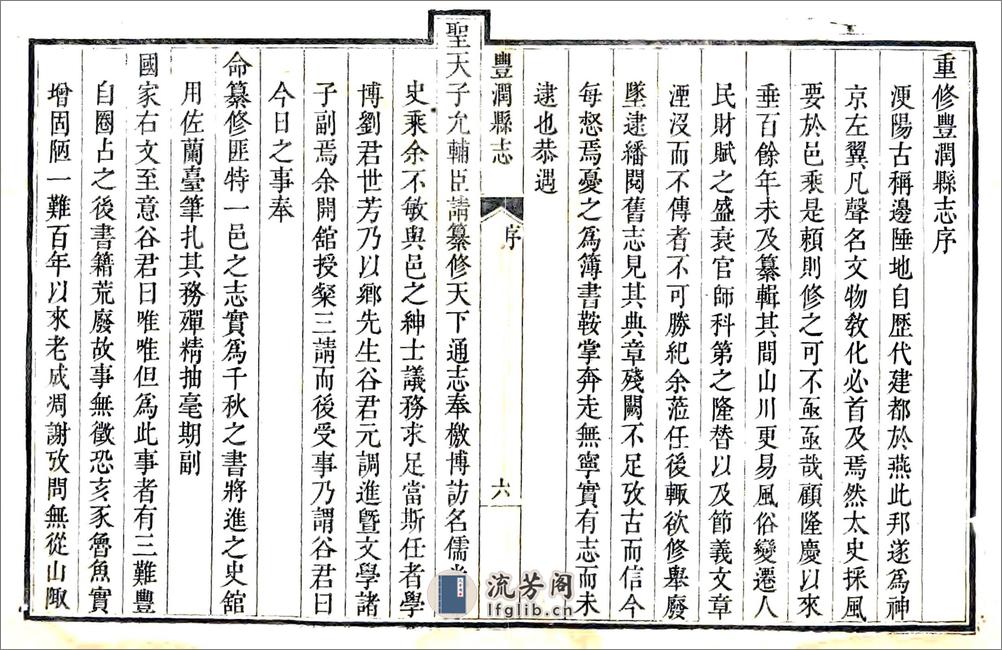 重修豐潤縣志序
浭陽古稱邊陲地自歷代建都於燕此邦遂爲神
京左翼凡聲名文物教化必首及焉然太史採風
要於邑乘是賴則修之可不亟亟哉顧隆慶以來
垂百餘年未及纂輯其間山川更易風俗變遷人
民財賦之盛衰官師科第之隆替以及節義文章
湮沒而不傳者不可勝紀余蒞任後輒欲修舉廢
墜逮繙閱舊志見其典章殘闕不足攷古而信今
每惄焉憂之爲簿書鞅掌奔走無寧實有志而未
逮也恭遇
豐潤縣志
序
六
聖天子允輔臣請纂修天下通志奉檄博訪名儒
史乘余不敏與邑之紳士議務求足當斯任者學
博劉君世芳乃以鄉先生谷君元調進曁文學諸
子副焉余開舘授粲三請而後受事乃謂谷君曰
今日之事奉
命纂修匪特一邑之志實爲千秋之書將進之史舘
用佐蘭臺筆扎其務殫精抽毫期副
國家右文至意谷君曰唯唯但爲此事者有三難豐
自圈占之後書籍荒廢故事無徵恐亥豕魯魚實
增固陋一難百年以來老成凋謝攷問無從山陬
流芳阁
lfglib.cn